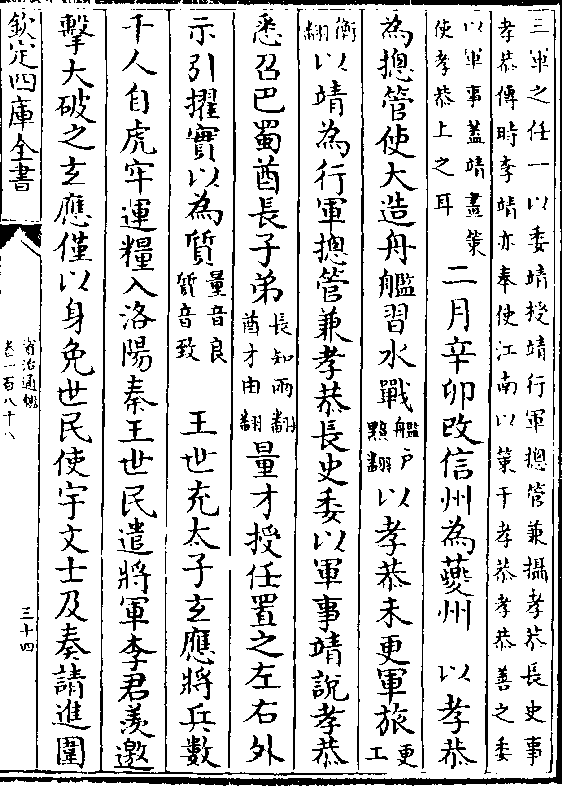 三軍之任一以委靖授靖行軍總管兼攝孝恭長史事
孝恭傳時李靖亦奉使江南以策干孝恭孝恭善之委
以軍事蓋靖畫策
使孝恭上之耳
二月辛卯改信州為夔州 以孝恭
為揔管使大造舟艦習水戰
艦户
黯翻
以孝恭未更軍旅
更
工
衡
翻
以靖為行軍揔管兼孝恭長史委以軍事靖說孝恭
悉召巴蜀酋長子弟
長知兩翻
酋才由翻
量才授任置之左右外
示引擢實以為質
量音良
質音致
王世充太子玄應將兵數
千人自虎牢運糧入洛陽秦王世民遣將軍李君羨邀
擊大破之玄應僅以身免世民使宇文士及奏請進圍
欽定四庫全書
資治通鑑
卷一百八十八
三十四